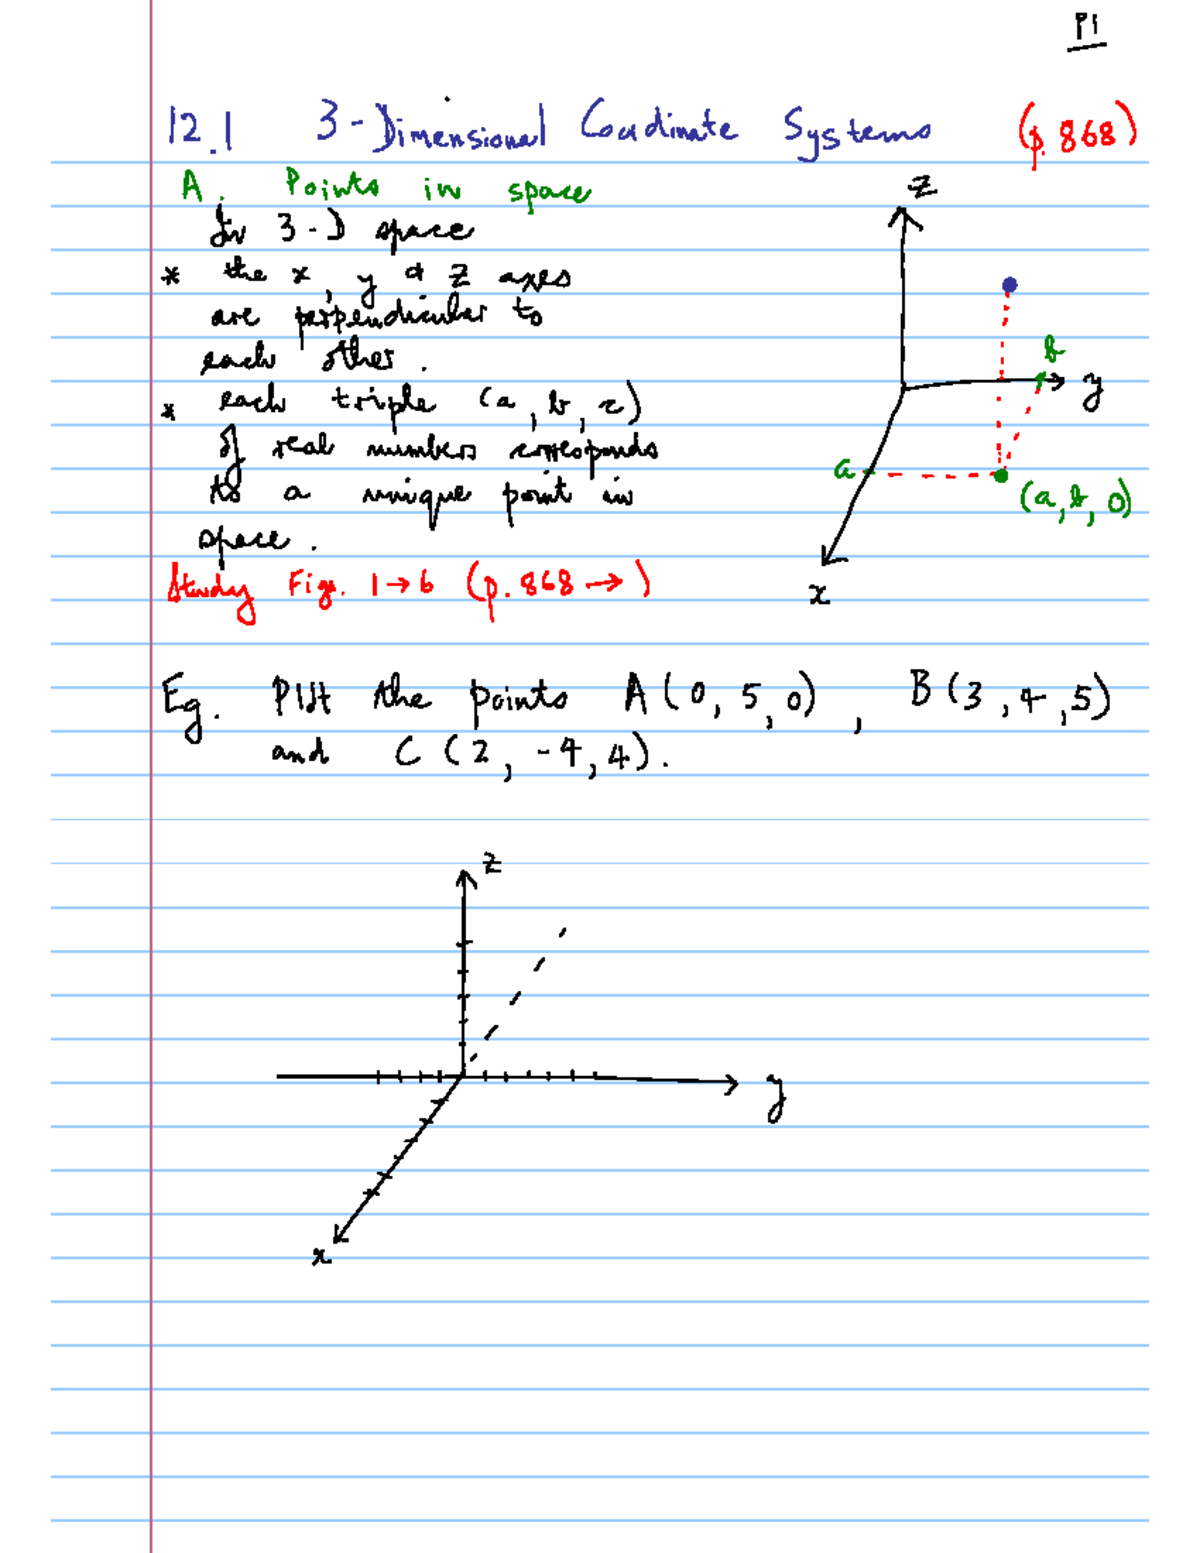 P1
12.1 3-Dimensional Coordinate Systems (p.868)
A. Points in space
In 3-D space
* the x, y & z axes
are perpendicular to
each other.
* each triple (a, b, c)
of real numbers corresponds
to a unique point in
space.
Study Figs. 1→6 (p.868→)
z
b
y
a
(a, b, 0)
x
Eg. Plot the points A(0, 5, 0), B(3, 4, 5)
and C(2, -4, 4).
z
y
x